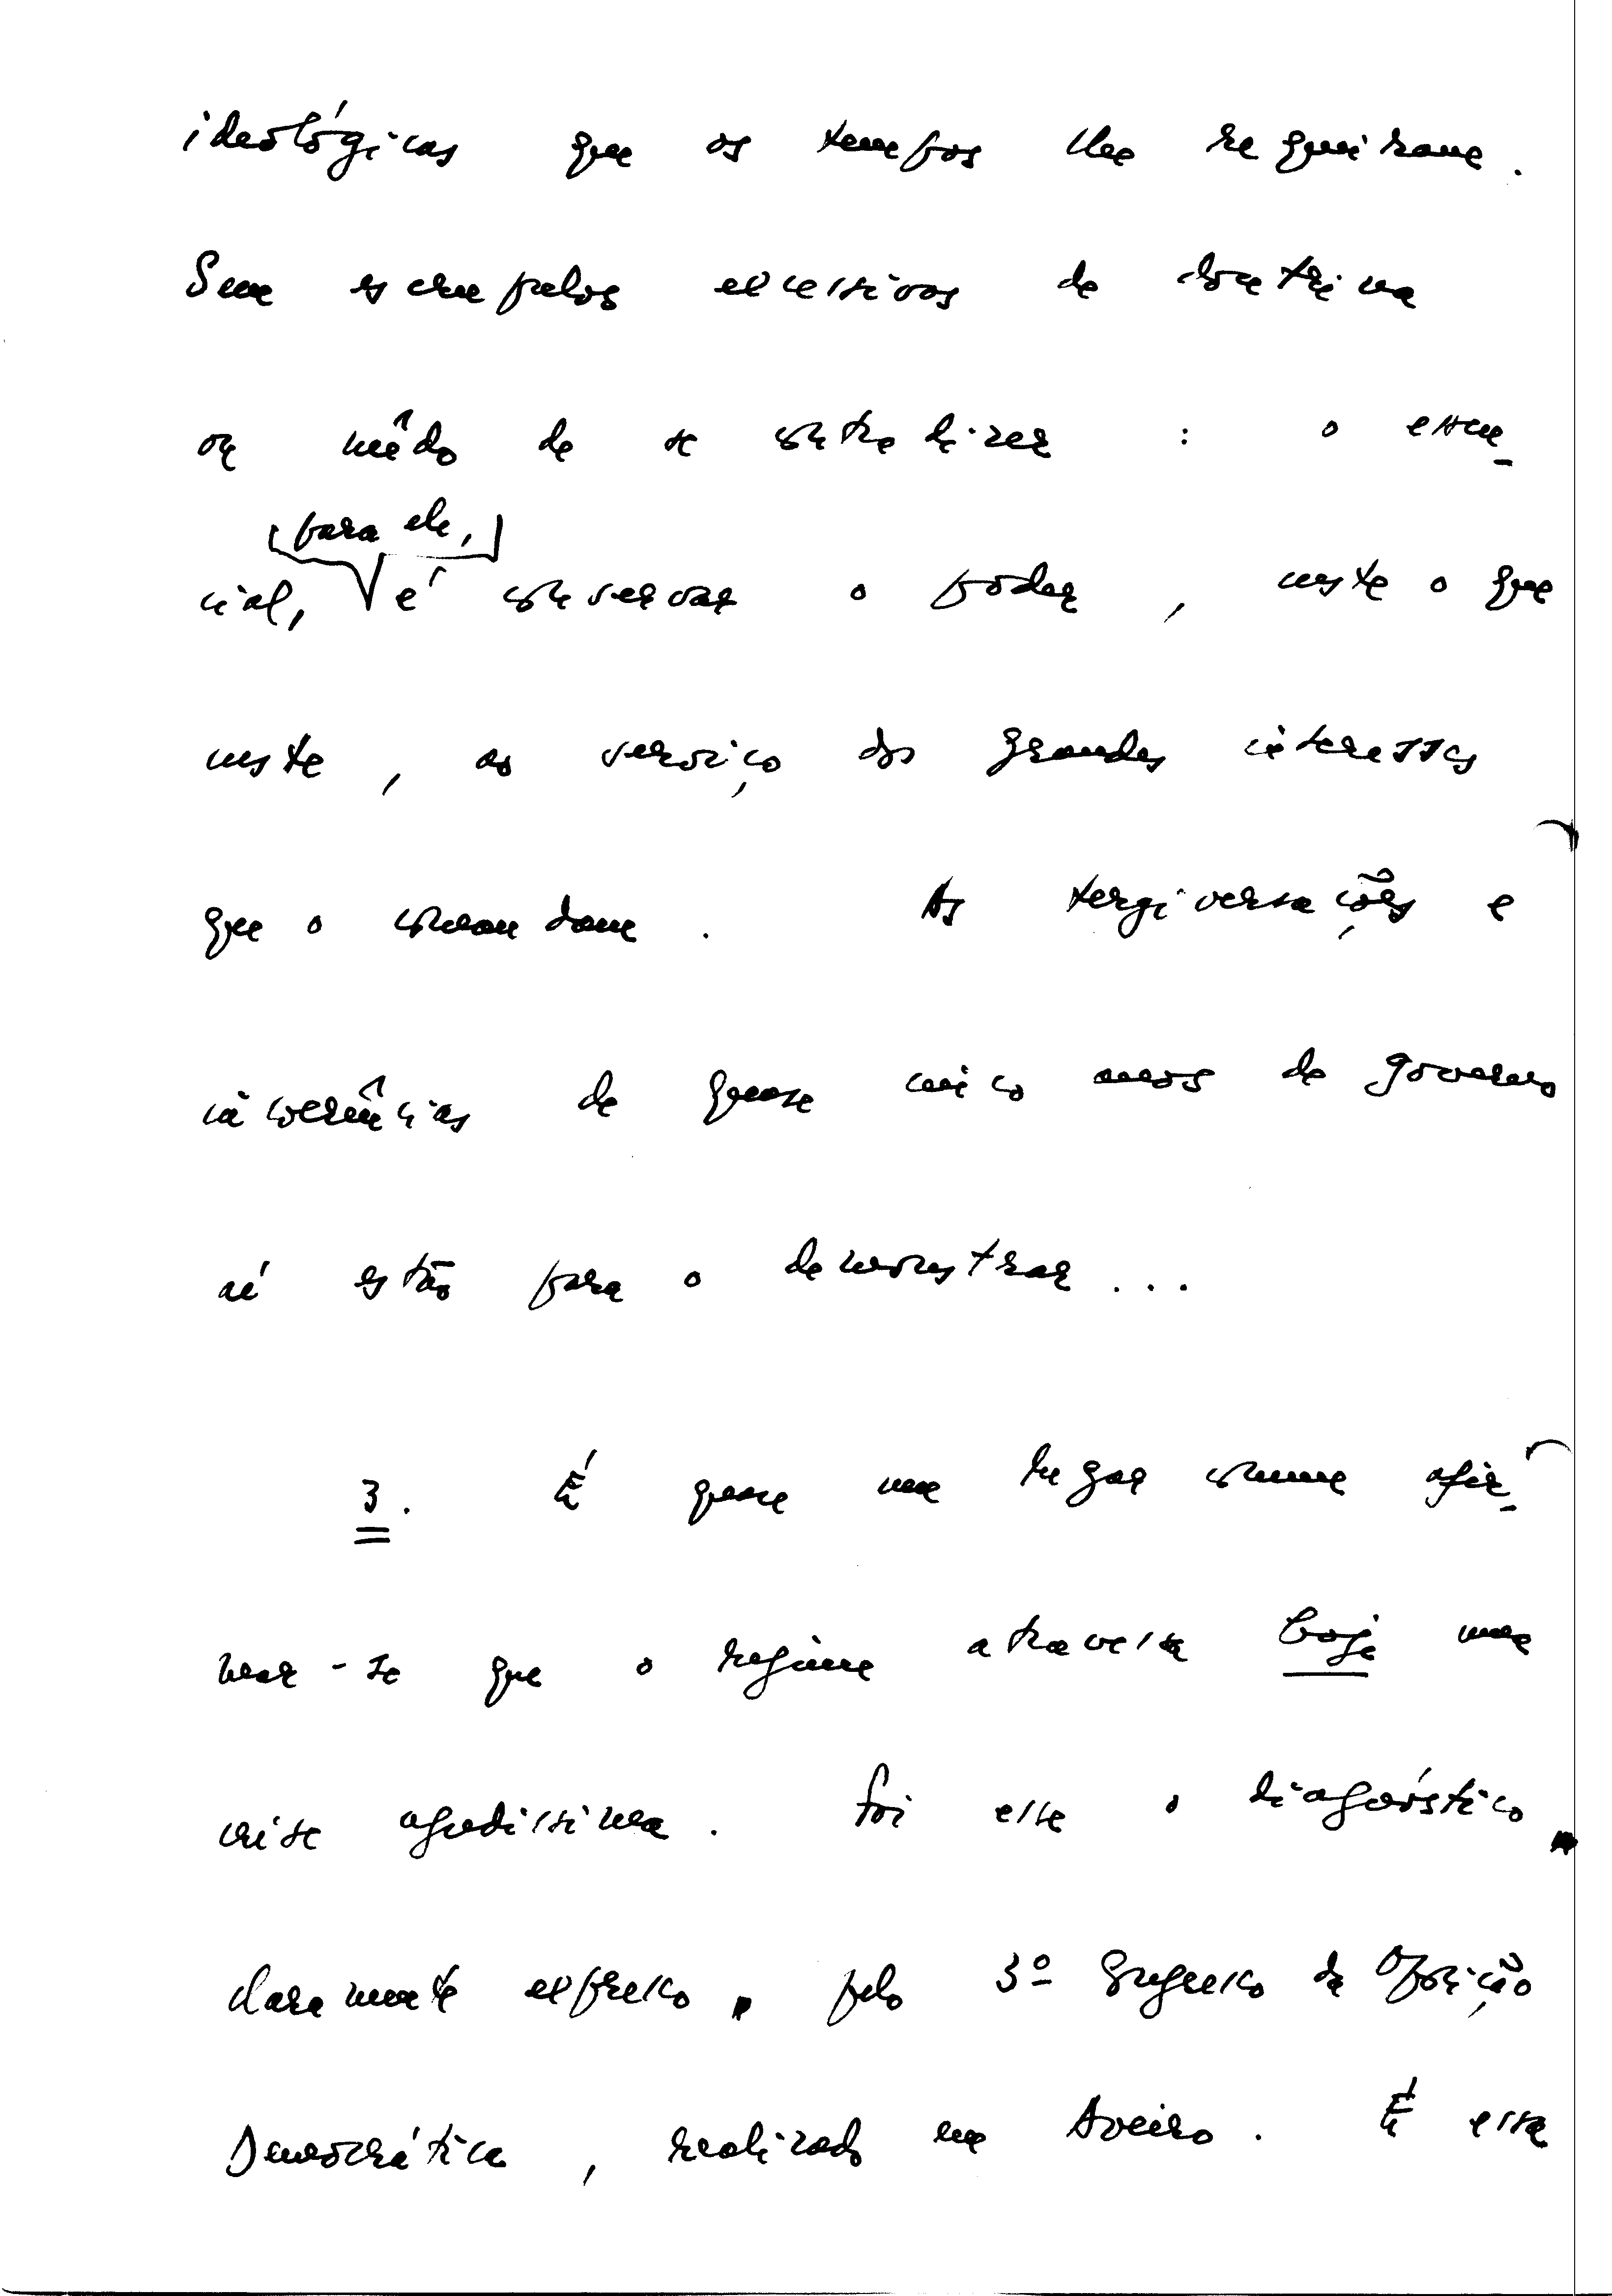 ideológicas que os tempos lhe requeiram.
Sem escrupulos excessivos de doutrina
ou mêdo de se contradizer : o essen-
para ele,
cial, é conservar o poder, custe o que
custe, ao serviço dos grandes interesses
que o comandam. As tergiversações e
incoerências de quase cinco anos de governo
aí estão para o demonstrar...
3. É quase um lugar comum afir-
mar-se que o regime atravessa hoje uma
crise agudissima. Foi esse o diagnóstico
claramente expresso pelo 3º Congresso da Oposição
Democrática, realizado em Aveiro. É essa